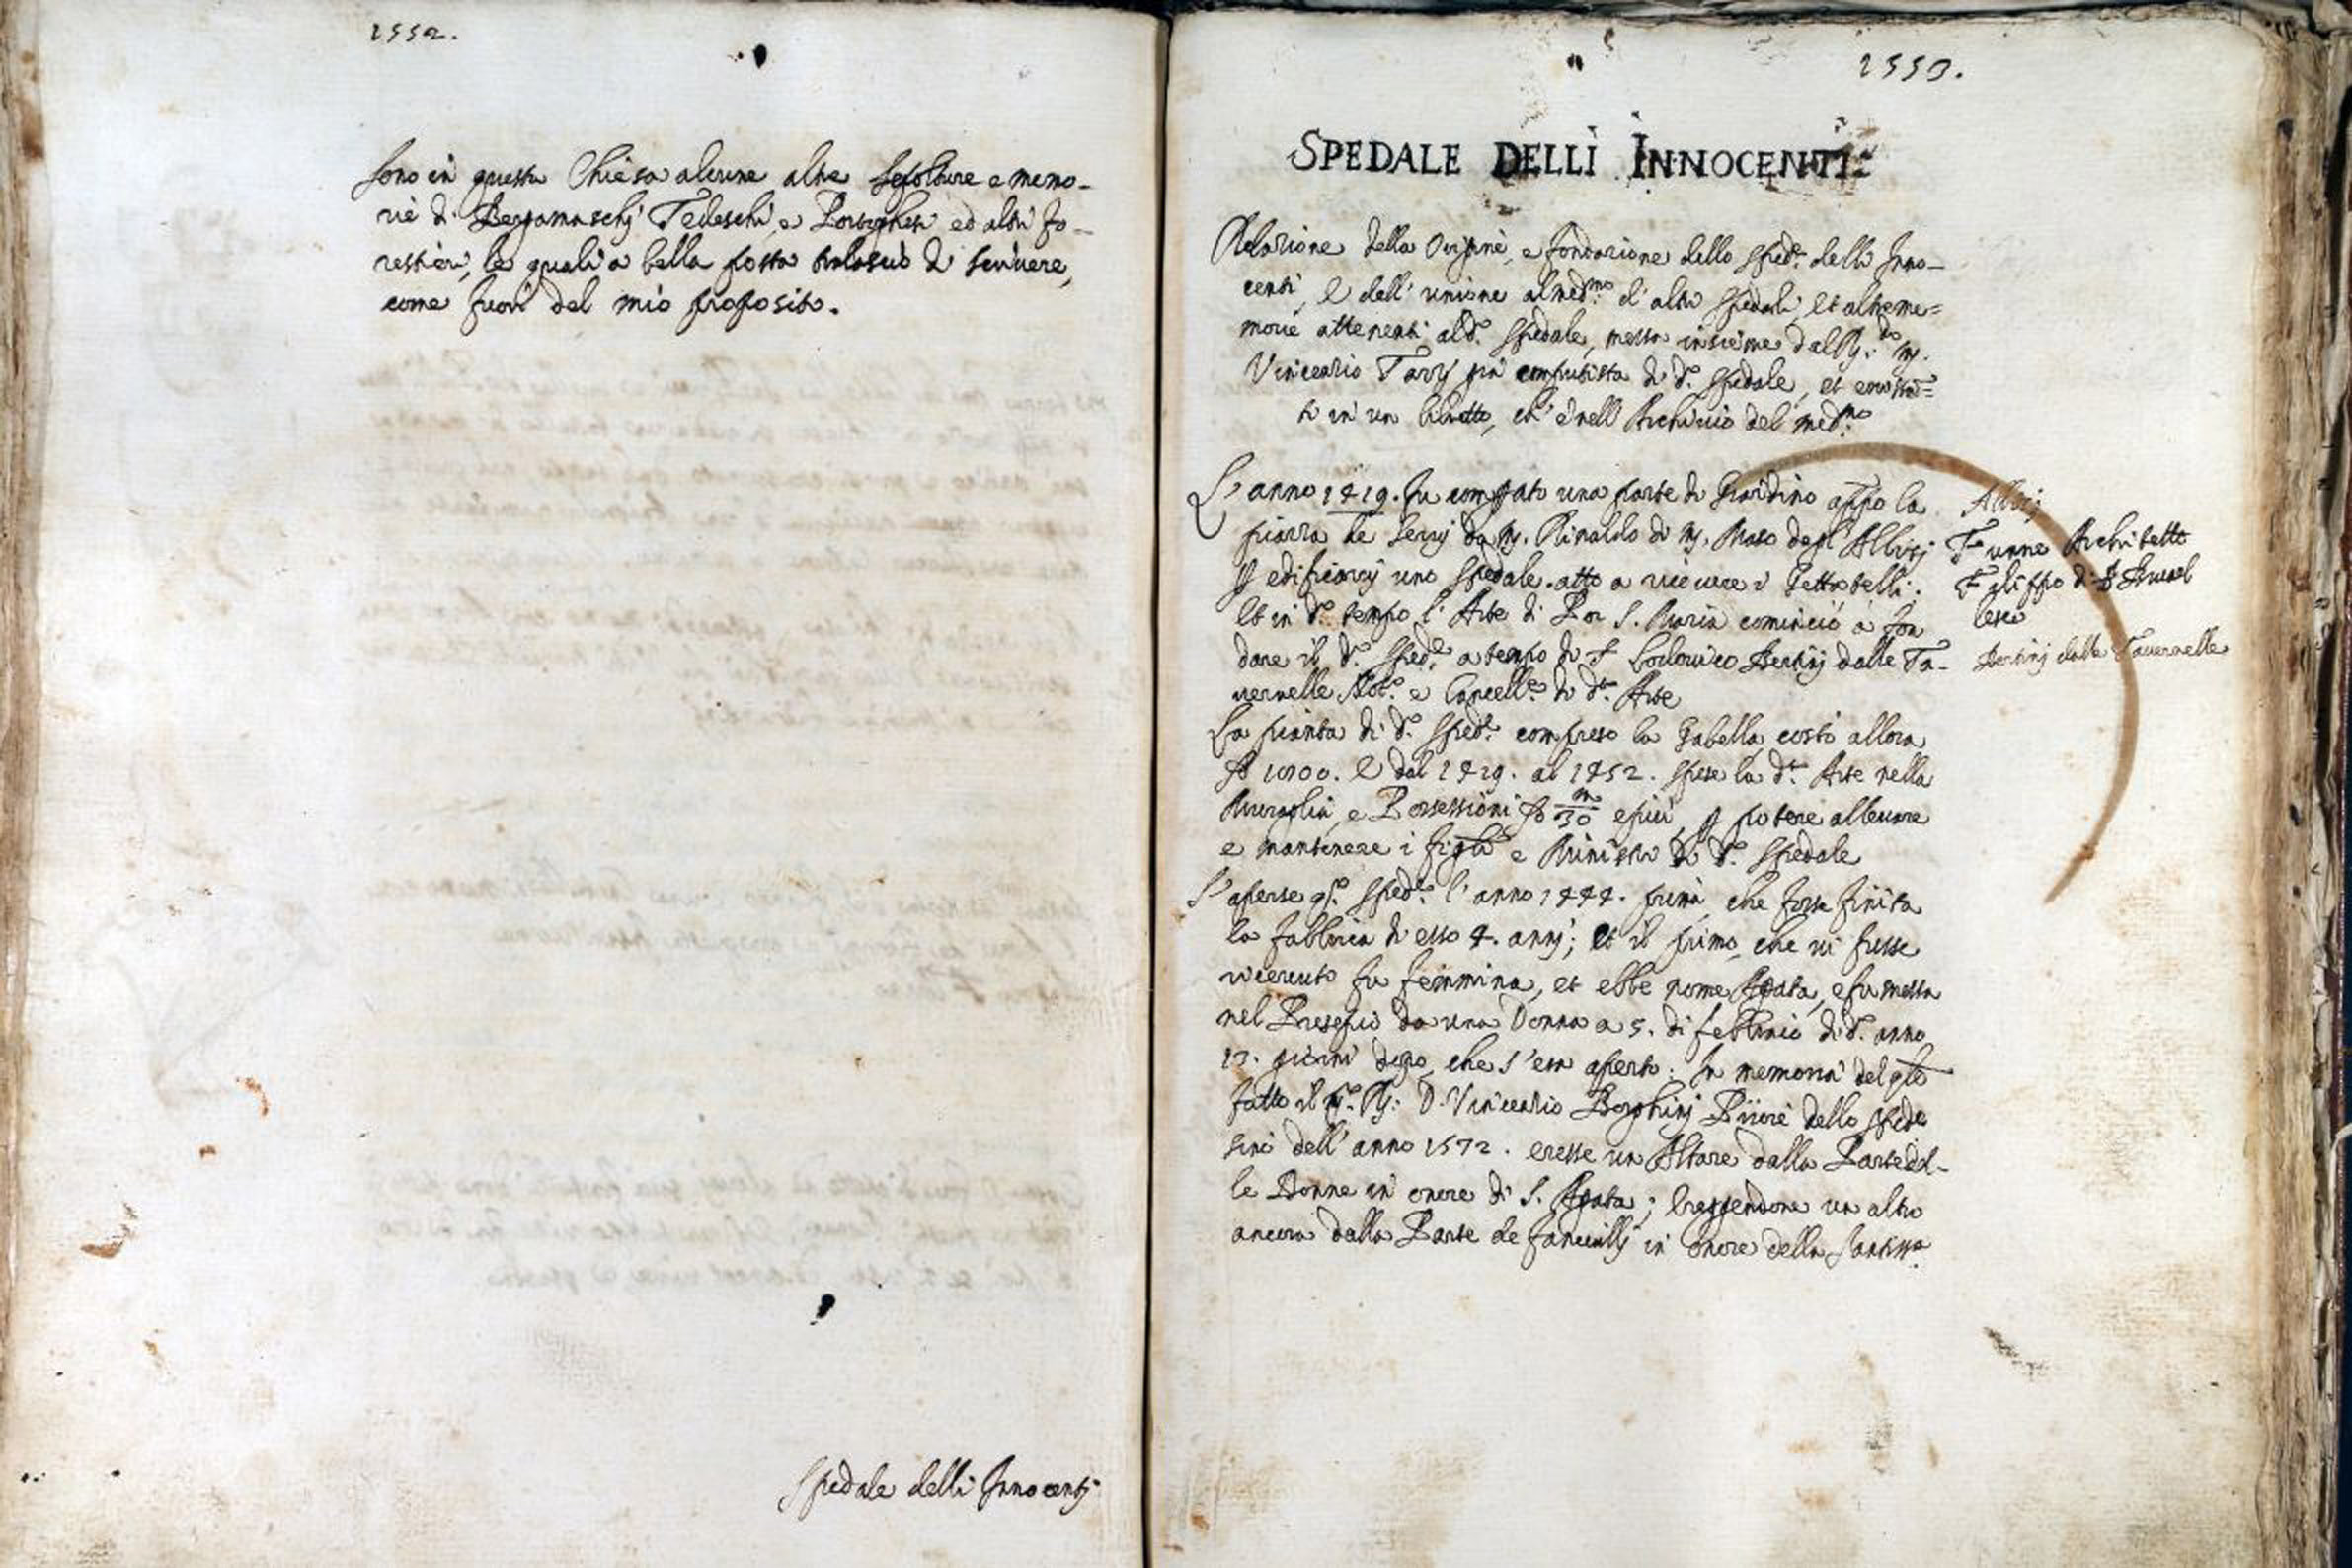 1552.
Sono in questa Chiesa alcune altre sepolture e memo-
rie di Bergamaschj Tedeschi, e Portoghesi ed altri fo-
restieri, le quali a bella posta tralascio di scrivere,
come fuori del mio proposito.
Spedale delli Innocentj
1553.
SPEDALE DELLI INNOCENTI
Relazione della Origine, e fondazione dello Sped.e delli Inno-
centi, e dell' unione al med.mo d' altri spedali, et altre me=
morie attenenti al d.o Spedale, messa insieme dal R.do m.
Vincenzio computista di d.o Spedale, et
ti in un libretto, ch' è nell' Archivio del med.mo
L' anno 1419. fu comprato una parte di Giardino appo la
piazza de Servj da M. Rinaldo di M. Maso degl' Albizj
p edificarvj uno Spedale atto a ricevere i Gettatelli.
Et in d.o tempo l' Arte di Por S. Maria cominciò a fon
dare il d.o Sped.e a tempo di S Lodovico Bertinj dalle Ta-
vernelle Not.o e Cancell.e di d.a Arte
La pianta di d.o Sped.e compreso la Gabella costò allora
1700. E dal 1419. al 1452. spese la d.a Arte nella
Muraglia, e Possessioni m/30 e più p potere allevare
e mantenere i figli e Ministri di d.o Spedale
S' aperse q.o Sped.e l' anno 1444. prima che fosse finita
la fabbrica di esso 4. annj; et il primo, che vi fusse
ricevuto fu femmina, et ebbe nome Agata, e fu messa
nel Presepio da una Donna a 5. di febbraio di d.o anno
13. giorni dopo che s' era aperto. In memoria del qle
fatto il R. D. Vincenzio Borghinj Priore dello Sped.e
sino dell' anno 1572. eresse un Altare dalla Parte del-
le Donne in onore di S. Agata; essendone un altro
ancora dalla Parte de fanciullj in onore della Santiss.a
Albizj
Funne Architetto
Filippo di Brunel
lesco
Bertinj dalle Tavernelle